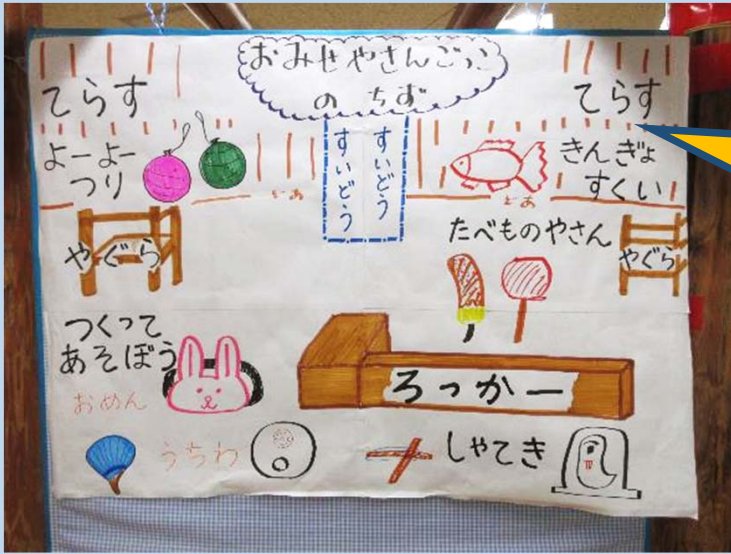 おみせやさんごっこ
のちず
てらす
てらす
よーよー
つり
すいどう
すいどう
きんぎょ
すくい
どあ
どあ
やぐら
たべものやさん
やぐら
つくって
あそぼう
おめん
ろっかー
うちわ
しゃてき